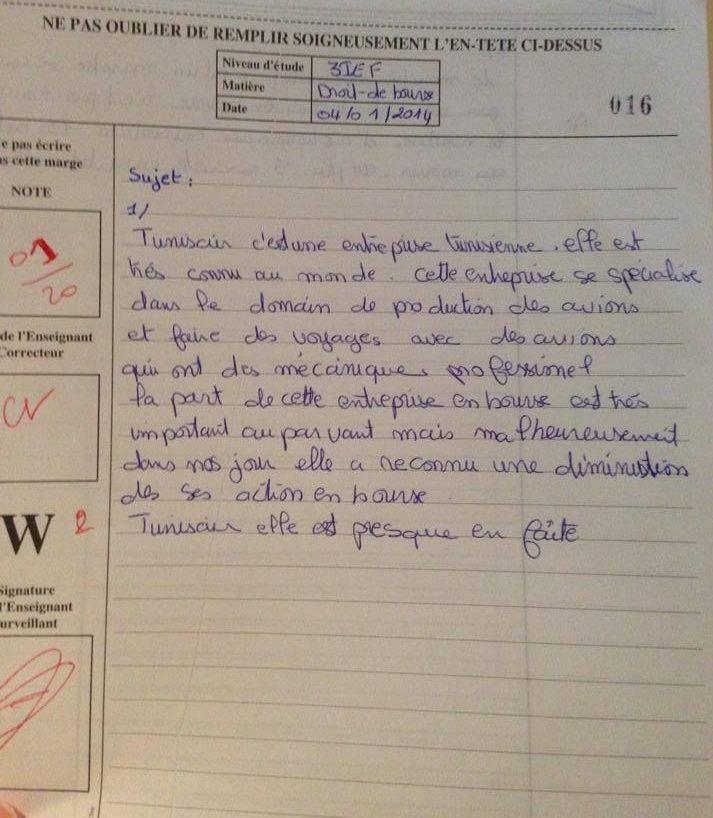 NE PAS OUBLIER DE REMPLIR SOIGNEUSEMENT L'EN-TETE CI-DESSUS
Niveau d'étude 3IEF
Matière Droit-de bourse
Date 04/01/2014
016
e pas écrire
s cette marge
NOTE
01/20
de l'Enseignant
Correcteur
W 2
Signature
l'Enseignant
urveillant
Sujet :
1/
Tunisair c'est une entreprise tunisienne. elle est
trés connu au monde. cette entreprise se spécialise
dans le domain de production des avions
et faire des voyages avec des avions
qui ont des mécaniques professionel
la part de cette entreprise en bourse est trés
important au par vant mais malheureusement
dans nos jour elle a reconnu une diminution
des ses action en bourse.
Tunisair elle est presque en faite